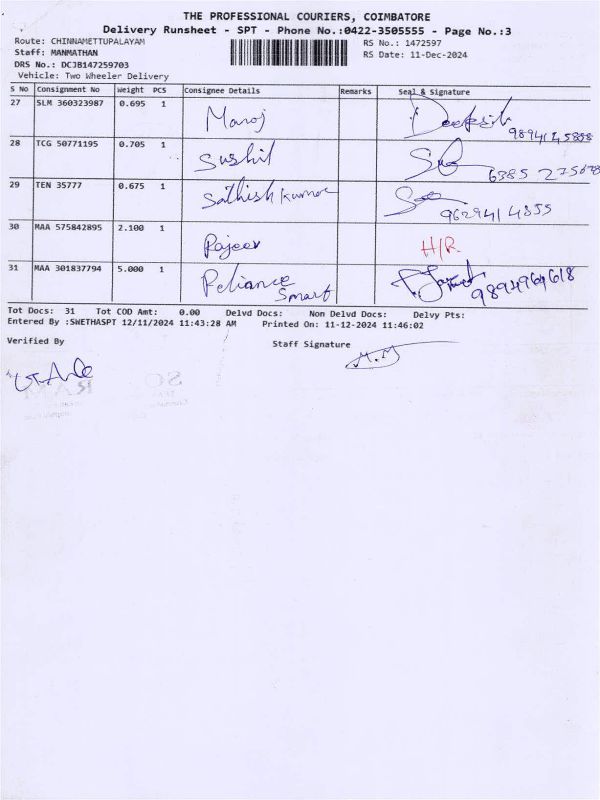 THE PROFESSIONAL COURIERS, COIMBATORE
Delivery Runsheet - SPT - Phone No.:0422-3505555 - Page No.:3
Route: CHINNAMETTUPALAYAM RS No.: 1472597
Staff: MANMATHAN RS Date: 11-Dec-2024
DRS No.: DCJB147259703
Vehicle: Two Wheeler Delivery
S No Consignment No Weight PCS Consignee Details Remarks Seal & Signature
27 SLM 360323987 0.695 1 Manoj Deeksih
28 TCG 50771195 0.705 1 Sushil
6385
29 TEN 35777 0.675 1 Sathish kumar
9629414855
30 MAA 575842895 2.100 1 Rajeev H/R.
31 MAA 301837794 5.000 1 Reliance
Smart 9894969618
Tot Docs: 31 Tot COD Amt: 0.00 Delvd Docs: Non Delvd Docs: Delvy Pts:
Entered By :SWETHASPT 12/11/2024 11:43:28 AM Printed On: 11-12-2024 11:46:02
Verified By Staff Signature
M.M